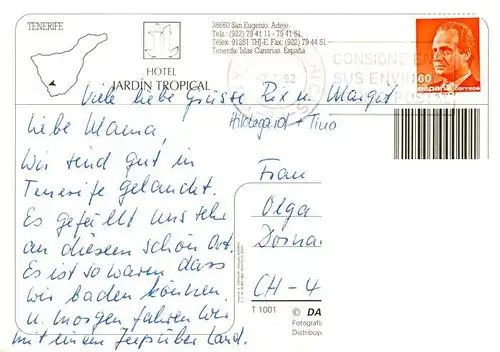 TENERIFE
HOTEL
JARDÍN TROPICAL
38660 San Eugenio, Adeje
Tels.: (922) 79 41 11 - 79 41 51
Télex: 91251 THJ-E. Fax: (922) 79 44 51
Tenerife. Islas Canarias. España
CONSIGNE EN
SUS ENVI
60
españa correos
Viele liebe Grüsse Rix u. Margrit
Hildegard + Tino
Liebe Mama,
Wir sind gut in
Teneriffe gelandet.
Es gefällt uns sehr
an diesem schön Ort.
Es ist so waren dass
wir baden können.
u. morgen fahren wir
mit einem Jeep über Land.
Frau
Olga
Dorna
CH-4
T 1001
© DA
Fotografí
Distribuye